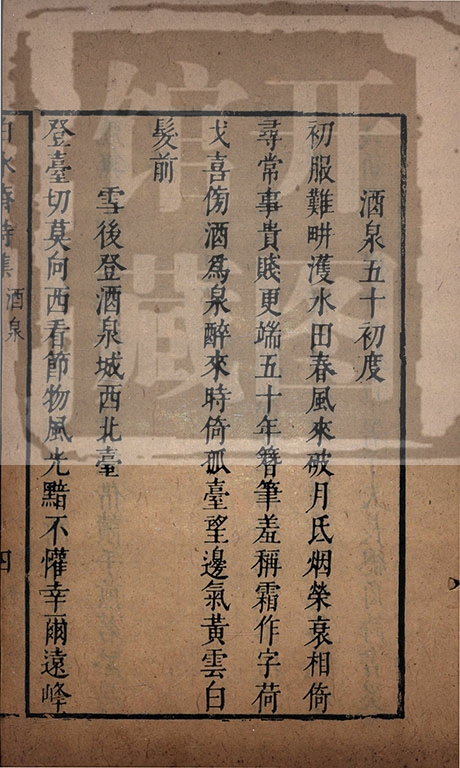 开图
馆藏
酒泉五十初度
初服難畊濩水田春風來破月氏烟榮衰相倚
尋常事貴賤更端五十年簪筆羞稱霜作字荷
戈喜傍酒爲泉醉來時倚孤臺望邊氣黃雲白
髮前
雪後登酒泉城西北臺
登臺切莫向西看節物風光黯不懽幸爾遠峰
酒泉
四